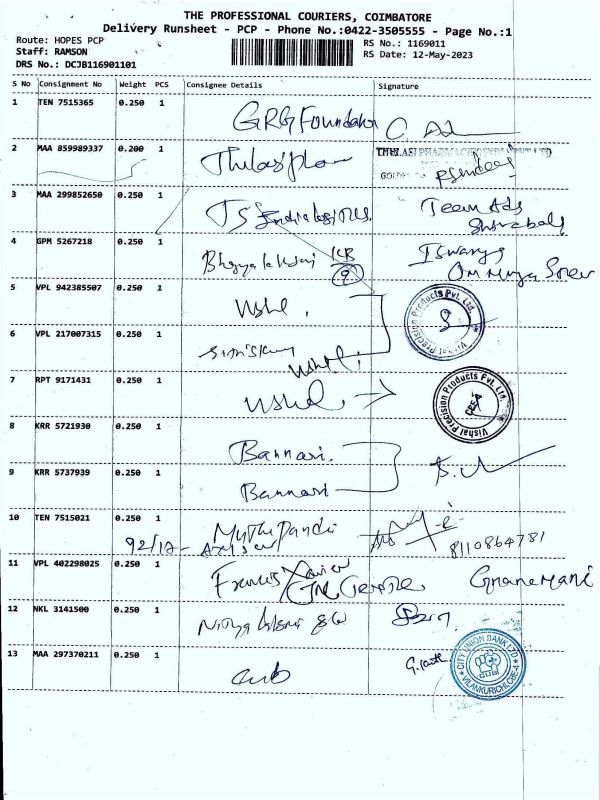 THE PROFESSIONAL COURIERS, COIMBATORE
Delivery Runsheet - PCP - Phone No.:0422-3505555 - Page No.:1
Route: HOPES PCP
Staff: RAMSON
DRS No.: DCJB116901101
RS No.: 1169011
RS Date: 12-May-2023
S No Consignment No Weight PCS Consignee Details Signature
1 TEN 7515365 0.250 1 GRG Foundation
2 MAA 859989337 0.200 1
THULASI PHARMACIES
GOLDEN
3 MAA 299852650 0.250 1 Team Ads
4 GPM 5267218 0.250 1 Bhagyalakshmi KB
9
Iswarya
5 VPL 942385507 0.250 1 Vishal
Vishal Precision Products Pvt. Ltd.
6 VPL 217007315 0.250 1
Vishal
7 RPT 9171431 0.250 1 Vishal
Vishal Precision Products Pvt. Ltd.
8 KRR 5721930 0.250 1 Bannari
9 KRR 5737939 0.250 1 Bannari
10 TEN 7515021 0.250 1 Muthu Pandi
92/12-
8110864781
11 VPL 402298025 0.250 1 Francis Xavier Gnanemani
12 NKL 3141500 0.250 1 Nithya
13 MAA 297370211 0.250 1 Cub
CITY UNION BANK LTD
CUB
VILANKURICHI, CBE-4